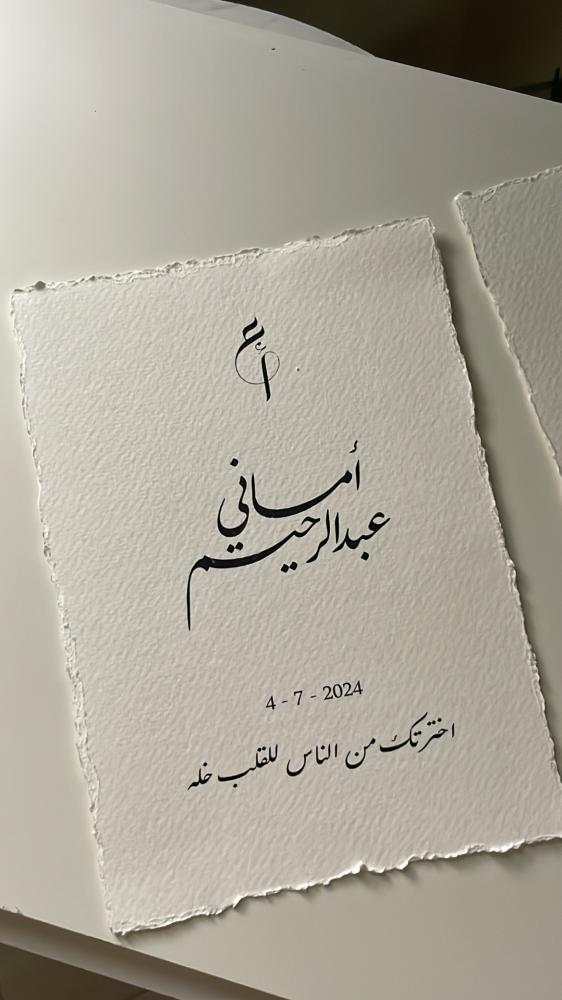 ع
أ
أماني
عبدالرحيم
4 - 7 - 2024
اخترتك من الناس للقلب خله